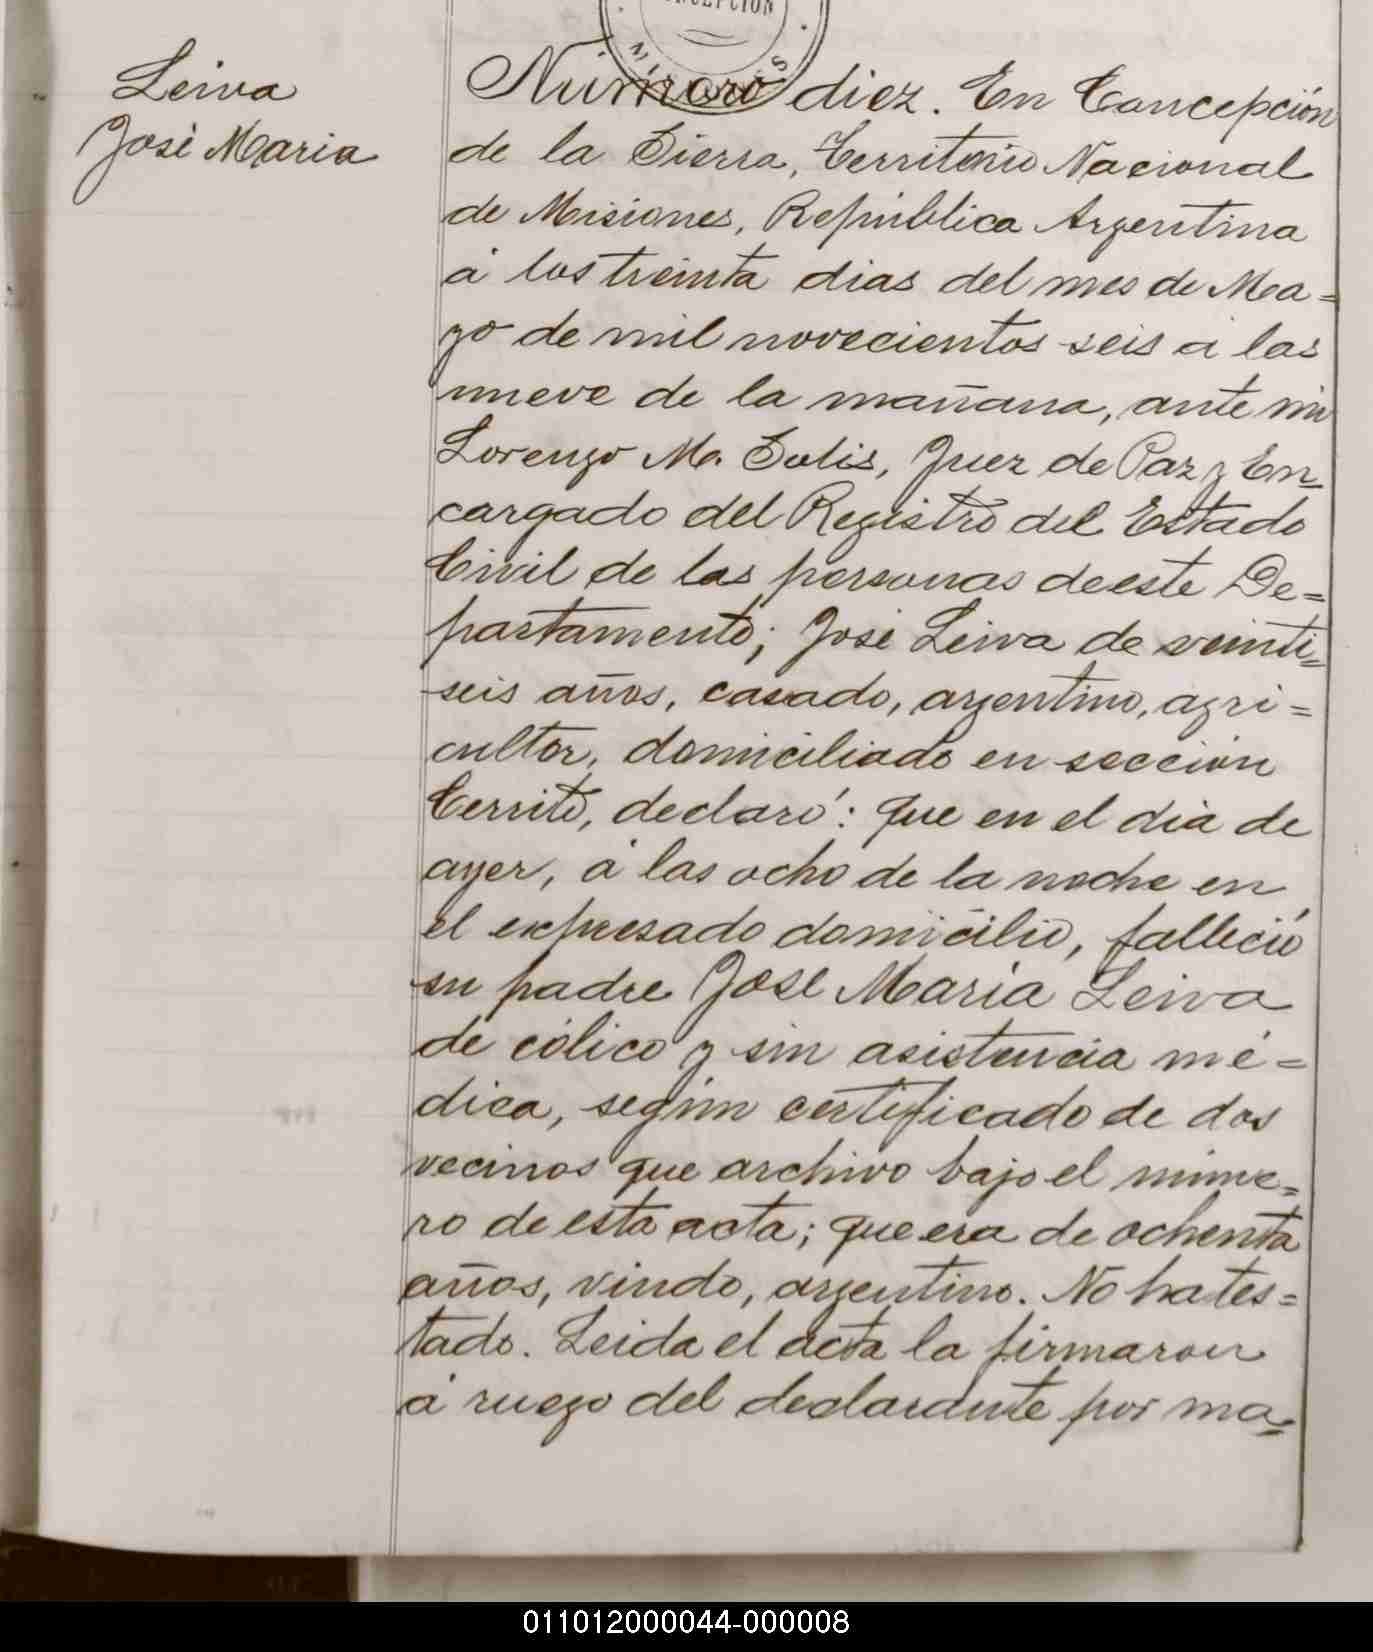 CONCEPCION
MISIONES
Leiva
José Maria
Número diez. En Concepción
de la Sierra, Territorio Nacional
de Misiones, República Argentina
á los treinta dias del mes de Ma=
yo de mil novecientos seis á las
nueve de la mañana, ante mi
Lorenzo M. Solis, Juez de Paz y En=
cargado del Registro del Estado
Civil de las personas de este De=
partamento; José Leiva de veinti=
seis años, casado, argentino, agri=
cultor, domiciliado en sección
Cerrito, declaró: Que en el dia de
ayer, á las ocho de la noche en
el expresado domicilio, falleció
su padre José Maria Leiva
de cólico y sin asistencia mé=
dica, según certificado de dos
vecinos que archivo bajo el núme=
ro de esta acta; que era de ochenta
años, viudo, argentino. No ha tes=
tado. Leida el acta la firmaron
á ruego del declarante por ma=
011012000044-000008